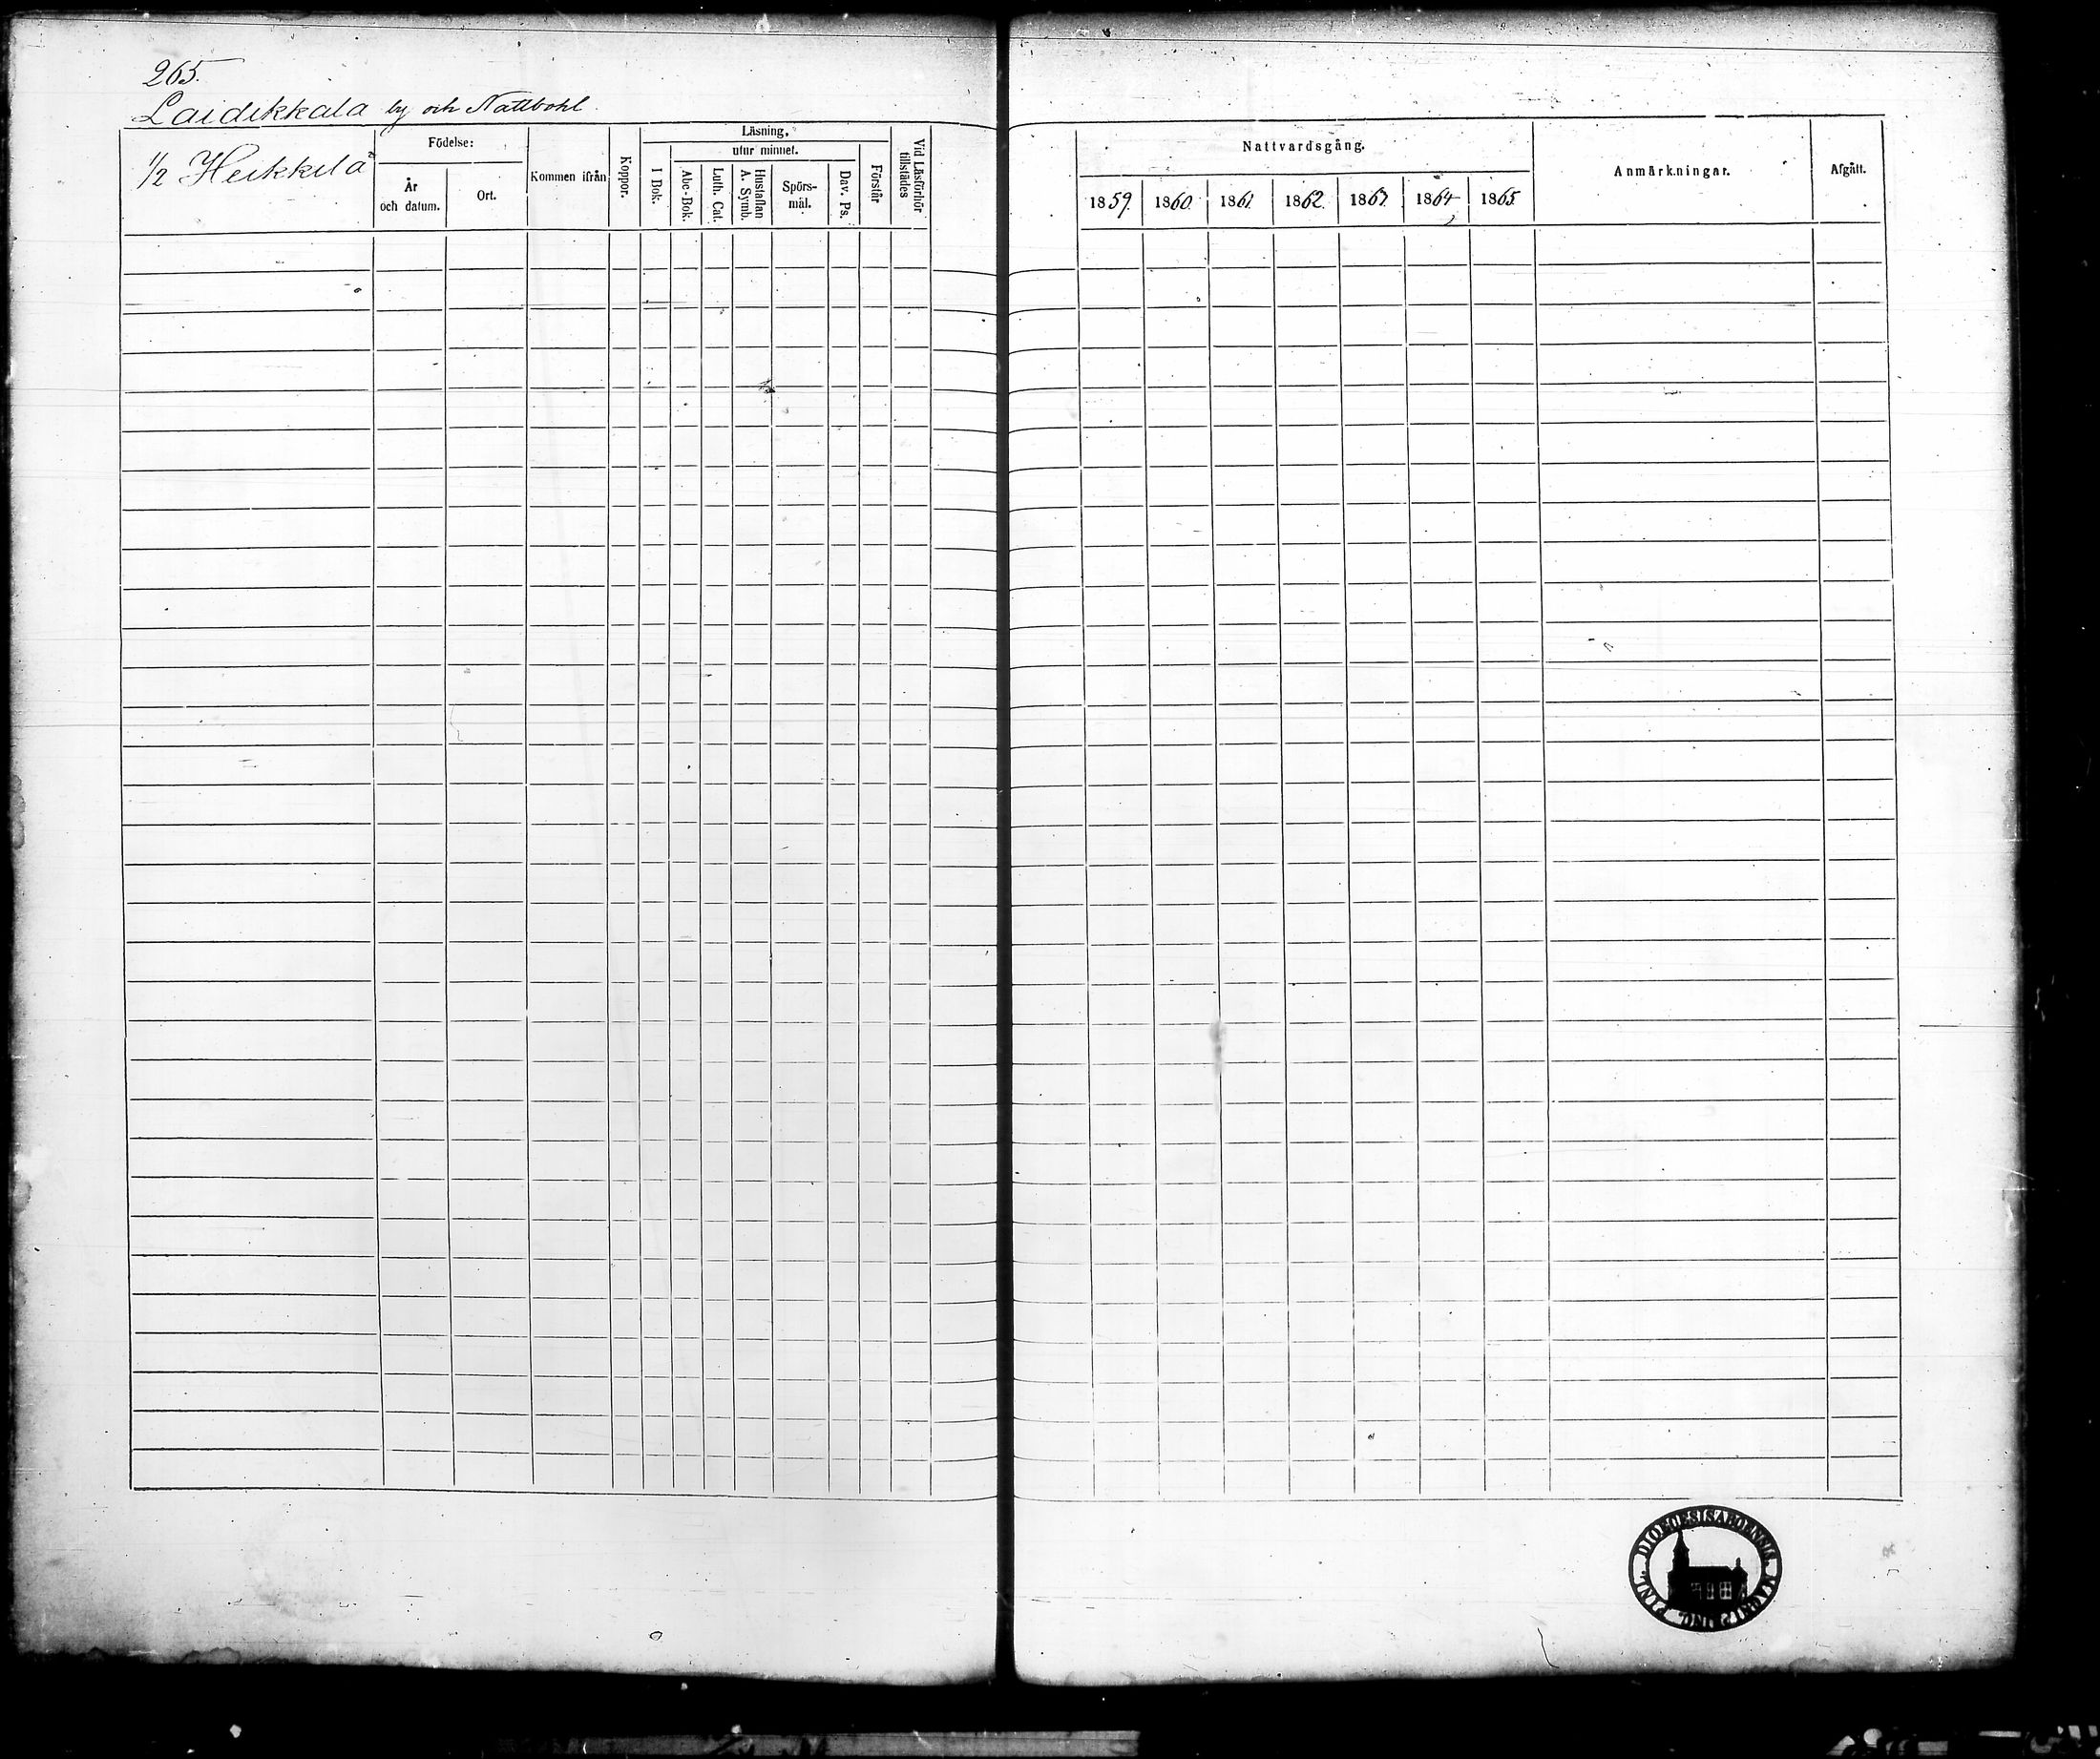 265.
Laidikkala by och Nattbohl.
1/2 Heikkilä
Födelse:
År
och datum.
Ort.
Kommen ifrån
Koppor.
Läsning,
utur minnet.
I Bok.
Abc-Bok.
Luth. Cat.
Hustaflan
A. Symb.
Spörs-
mål.
Dav. Ps.
Förstår
Vid Läsförhör
tillstädes
Nattvardsgång.
1859. 1860. 1861. 1862. 1863. 1864 1865.
Anmärkningar.
Afgått.